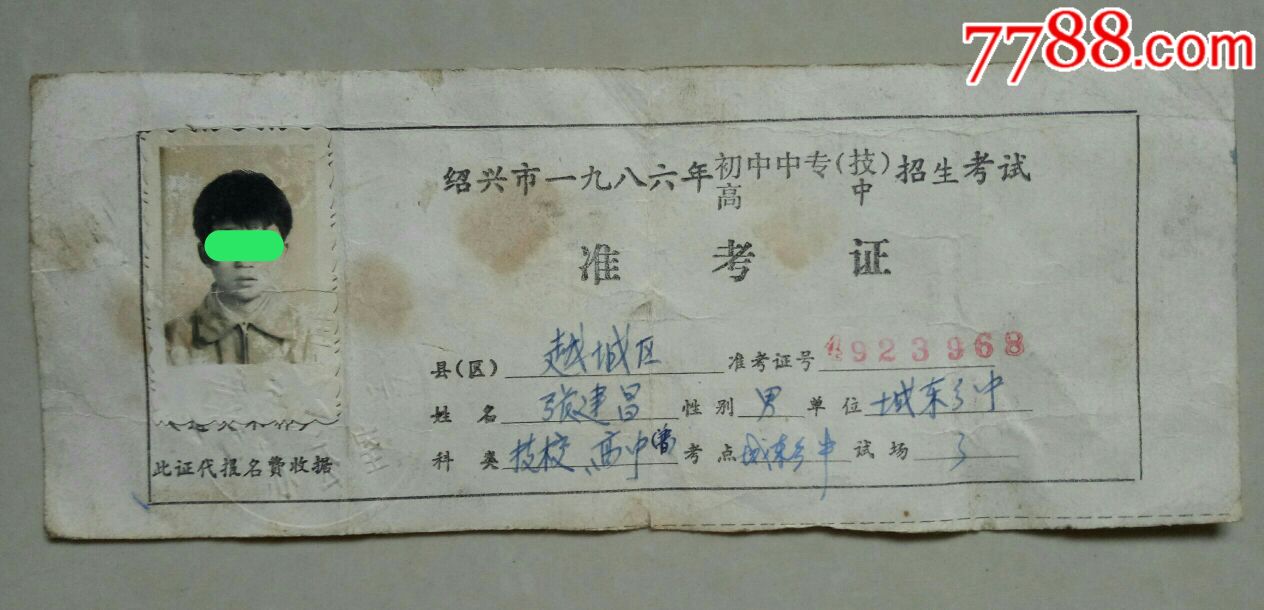 7788.com
绍兴市一九八六年初中中专(技)招生考试
高 中
准考证
县(区) 越城区 准考证号 923968
姓名 张建昌 性别 男 单位 城东乡中
科类 技校、高中 考点 城东乡中 试场 3
此证代报名费收据